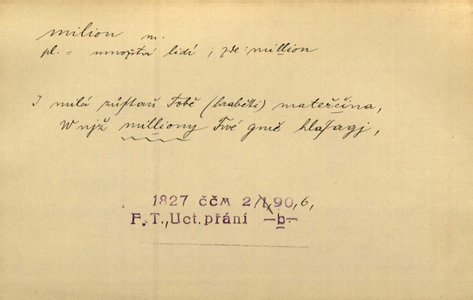 milion n.
pl. = množství lidí ; zde: million
I milá zůstaň Tobě (hraběti) mateřčina,
W njž milliony Twé gmé hlásagj,
1827 ččm 2/1,90, 6,
F. T., Uct. přání -b-